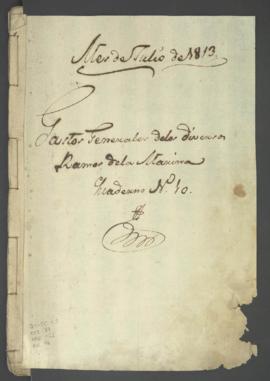 Mes de Julio de 1813.
Gastos Generales de los diversos
Ramos de la Marina
Quaderno N. 10.